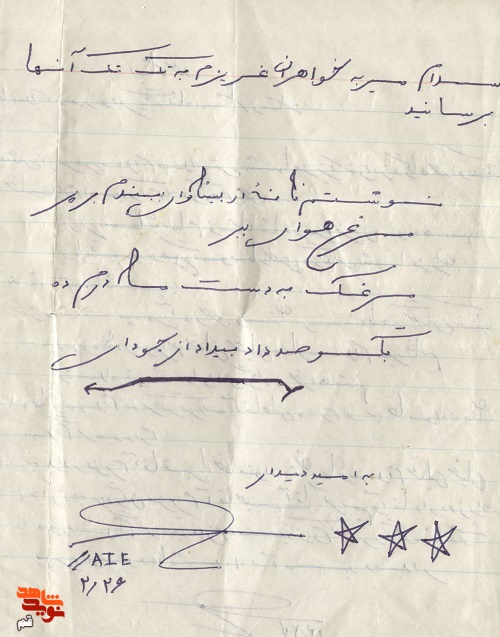 سلام مرا به خواهران عزیزم به تک تک آنها
برسانید
نوشتم نامه از بینوای ببندم بر پر
مرغ هوای ببر
مرغک به دست مادرم ده
بگو صد داد بیداد از جودای
به امید دیدار
AIE
۲/۲۶
نوید شاهد
قم